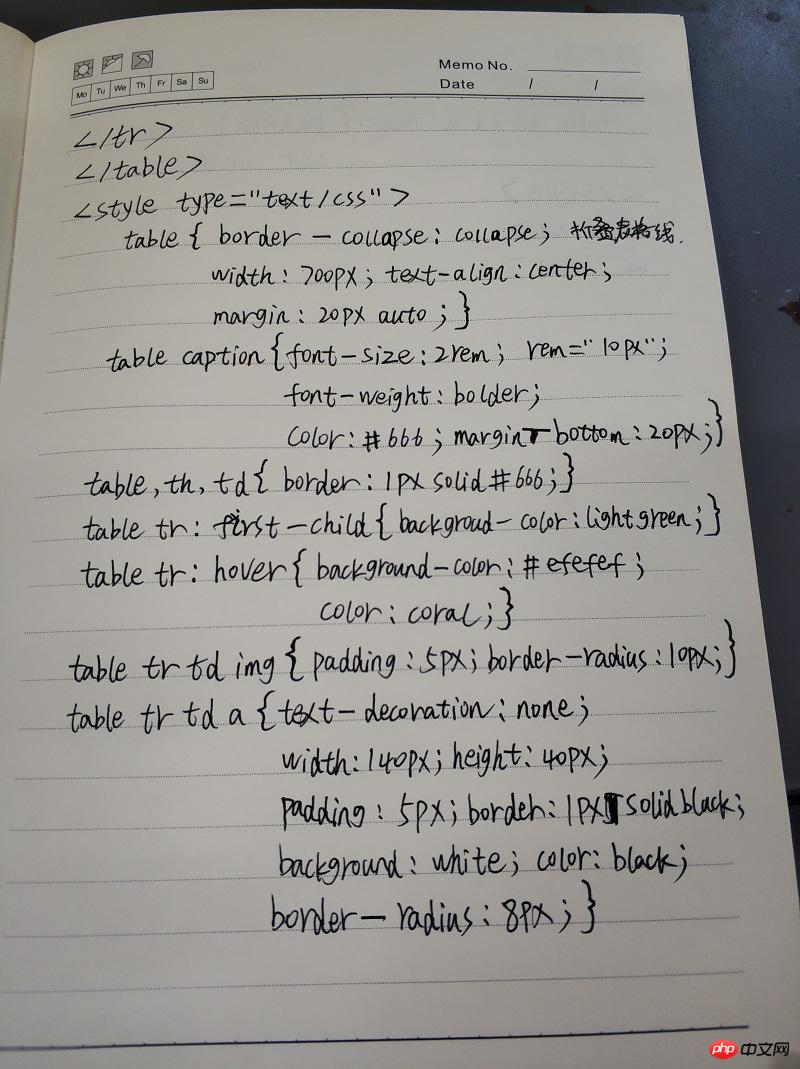 Memo No.
Mo Tu We Th Fr Sa Su
Date / /
</tr>
</table>
<style type="text/css">
table { border-collapse: collapse; 折叠表格线.
width: 700px; text-align: center;
margin: 20px auto; }
table caption { font-size: 2rem; rem="10px";
font-weight: bolder;
color: #666; margin-bottom: 20px; }
table, th, td { border: 1px solid #666; }
table tr: first-child { backgroud-color: lightgreen; }
table tr: hover { background-color: #efefef;
color: coral; }
table tr td img { padding: 5px; border-radius: 10px; }
table tr td a { text-decoration: none;
width: 140px; height: 40px;
padding: 5px; border: 1px solid black;
background: white; color: black;
border-radius: 8px; }
php 中文网